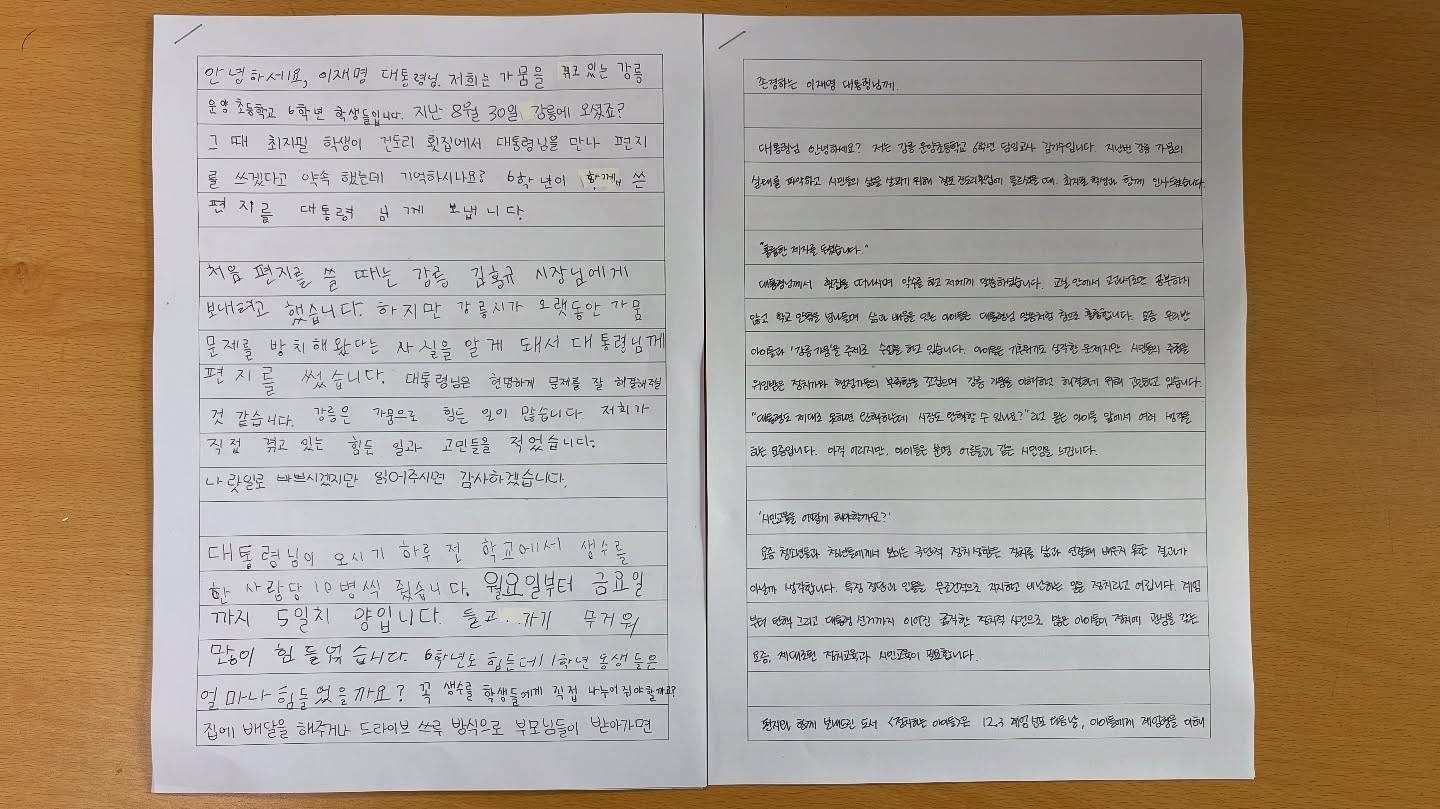 안녕하세요, 이재명 대통령님. 저희는 가뭄을 겪고 있는 강릉
운양초등학교 6학년 학생들입니다. 지난 8월 30일 강릉에 오셨죠?
그 때 최지필 학생이 건도리 횟집에서 대통령님을 만나 편지
를 쓰겠다고 약속 했는데 기억하시나요? 6학년이 함께 쓴
편지를 대통령 님께 보냅니다.
처음 편지를 쓸 때는 강릉 김홍규 시장님에게
보내려고 했습니다. 하지만 강릉시가 오랫동안 가뭄
문제를 방치해왔다는 사실을 알게 돼서 대통령님께
편지를 썼습니다. 대통령님은 현명하게 문제를 잘 해결해주실
것 같습니다. 강릉은 가뭄으로 힘든 일이 많습니다. 저희가
직접 겪고 있는 힘든 일과 고민들을 적었습니다.
나랏일로 바쁘시겠지만 읽어주시면 감사하겠습니다.
대통령님이 오시기 하루 전 학교에서 생수를
한 사람당 10병씩 줬습니다. 월요일부터 금요일
까지 5일치 양입니다. 들고 가기 무거워
많이 힘들었습니다. 6학년도 힘든데 1학년 동생들은
얼마나 힘들었을까요? 꼭 생수를 학생들에게 직접 나누어 줘야 할까요?
집에 배달을 해주거나 드라이브 쓰루 방식으로 부모님들이 받아가면
존경하는 이재명 대통령님께.
대통령님 안녕하세요? 저는 강릉 운양초등학교 6학년 담임교사 김기수입니다. 지난번 강릉 가뭄의
실태를 파악하고 시민들의 삶을 살피기 위해 건도리횟집에 들르셨을 때, 최지필 학생과 함께 인사드렸습니다.
"훌륭한 제자를 두셨습니다."
대통령님께서 횟집을 떠나시며 악수를 하고 저에게 말씀하셨습니다. 교실 안에서 교과서로만 공부하지
않고 학교 안팎을 넘나들며 삶과 배움을 잇는 아이들은 대통령님 말씀처럼 참으로 훌륭합니다. 요즘 우리반
아이들과 '강릉 가뭄'을 주제로 수업을 하고 있습니다. 아이들은 기후위기도 심각한 문제지만 시민들의 주권을
위임받은 정치가와 행정가들의 부족함을 꼬집으며 강릉 가뭄을 이해하고 해결하기 위해 고민하고 있습니다.
"대통령도 제대로 못하면 탄핵하는데 시장도 탄핵할 수 있나요?"라고 묻는 아이들 앞에서 여러 생각을
하는 요즘입니다. 아직 어리지만, 아이들은 분명 어른들과 같은 시민임을 느낍니다.
'시민교육을 어떻게 해야할까요?'
요즘 청소년들과 청년들에게서 보이는 극단적 정치성향은 정치를 삶과 연결해 배우지 못한 결과가
아닐까 생각합니다. 특정 정당과 인물을 무조건적으로 지지하고 비난하는 일을 정치라고 여깁니다. 계엄
부터 탄핵 그리고 대통령 선거까지 이어진 굵직한 정치적 사건으로 많은 아이들이 정치에 관심을 갖는
요즘, 제대로된 정치교육과 시민교육이 필요합니다.
편지와 함께 보내드린 도서 <정치하는 아이들>은 12.3 계엄 선포 다음날, 아이들에게 계엄령을 이해